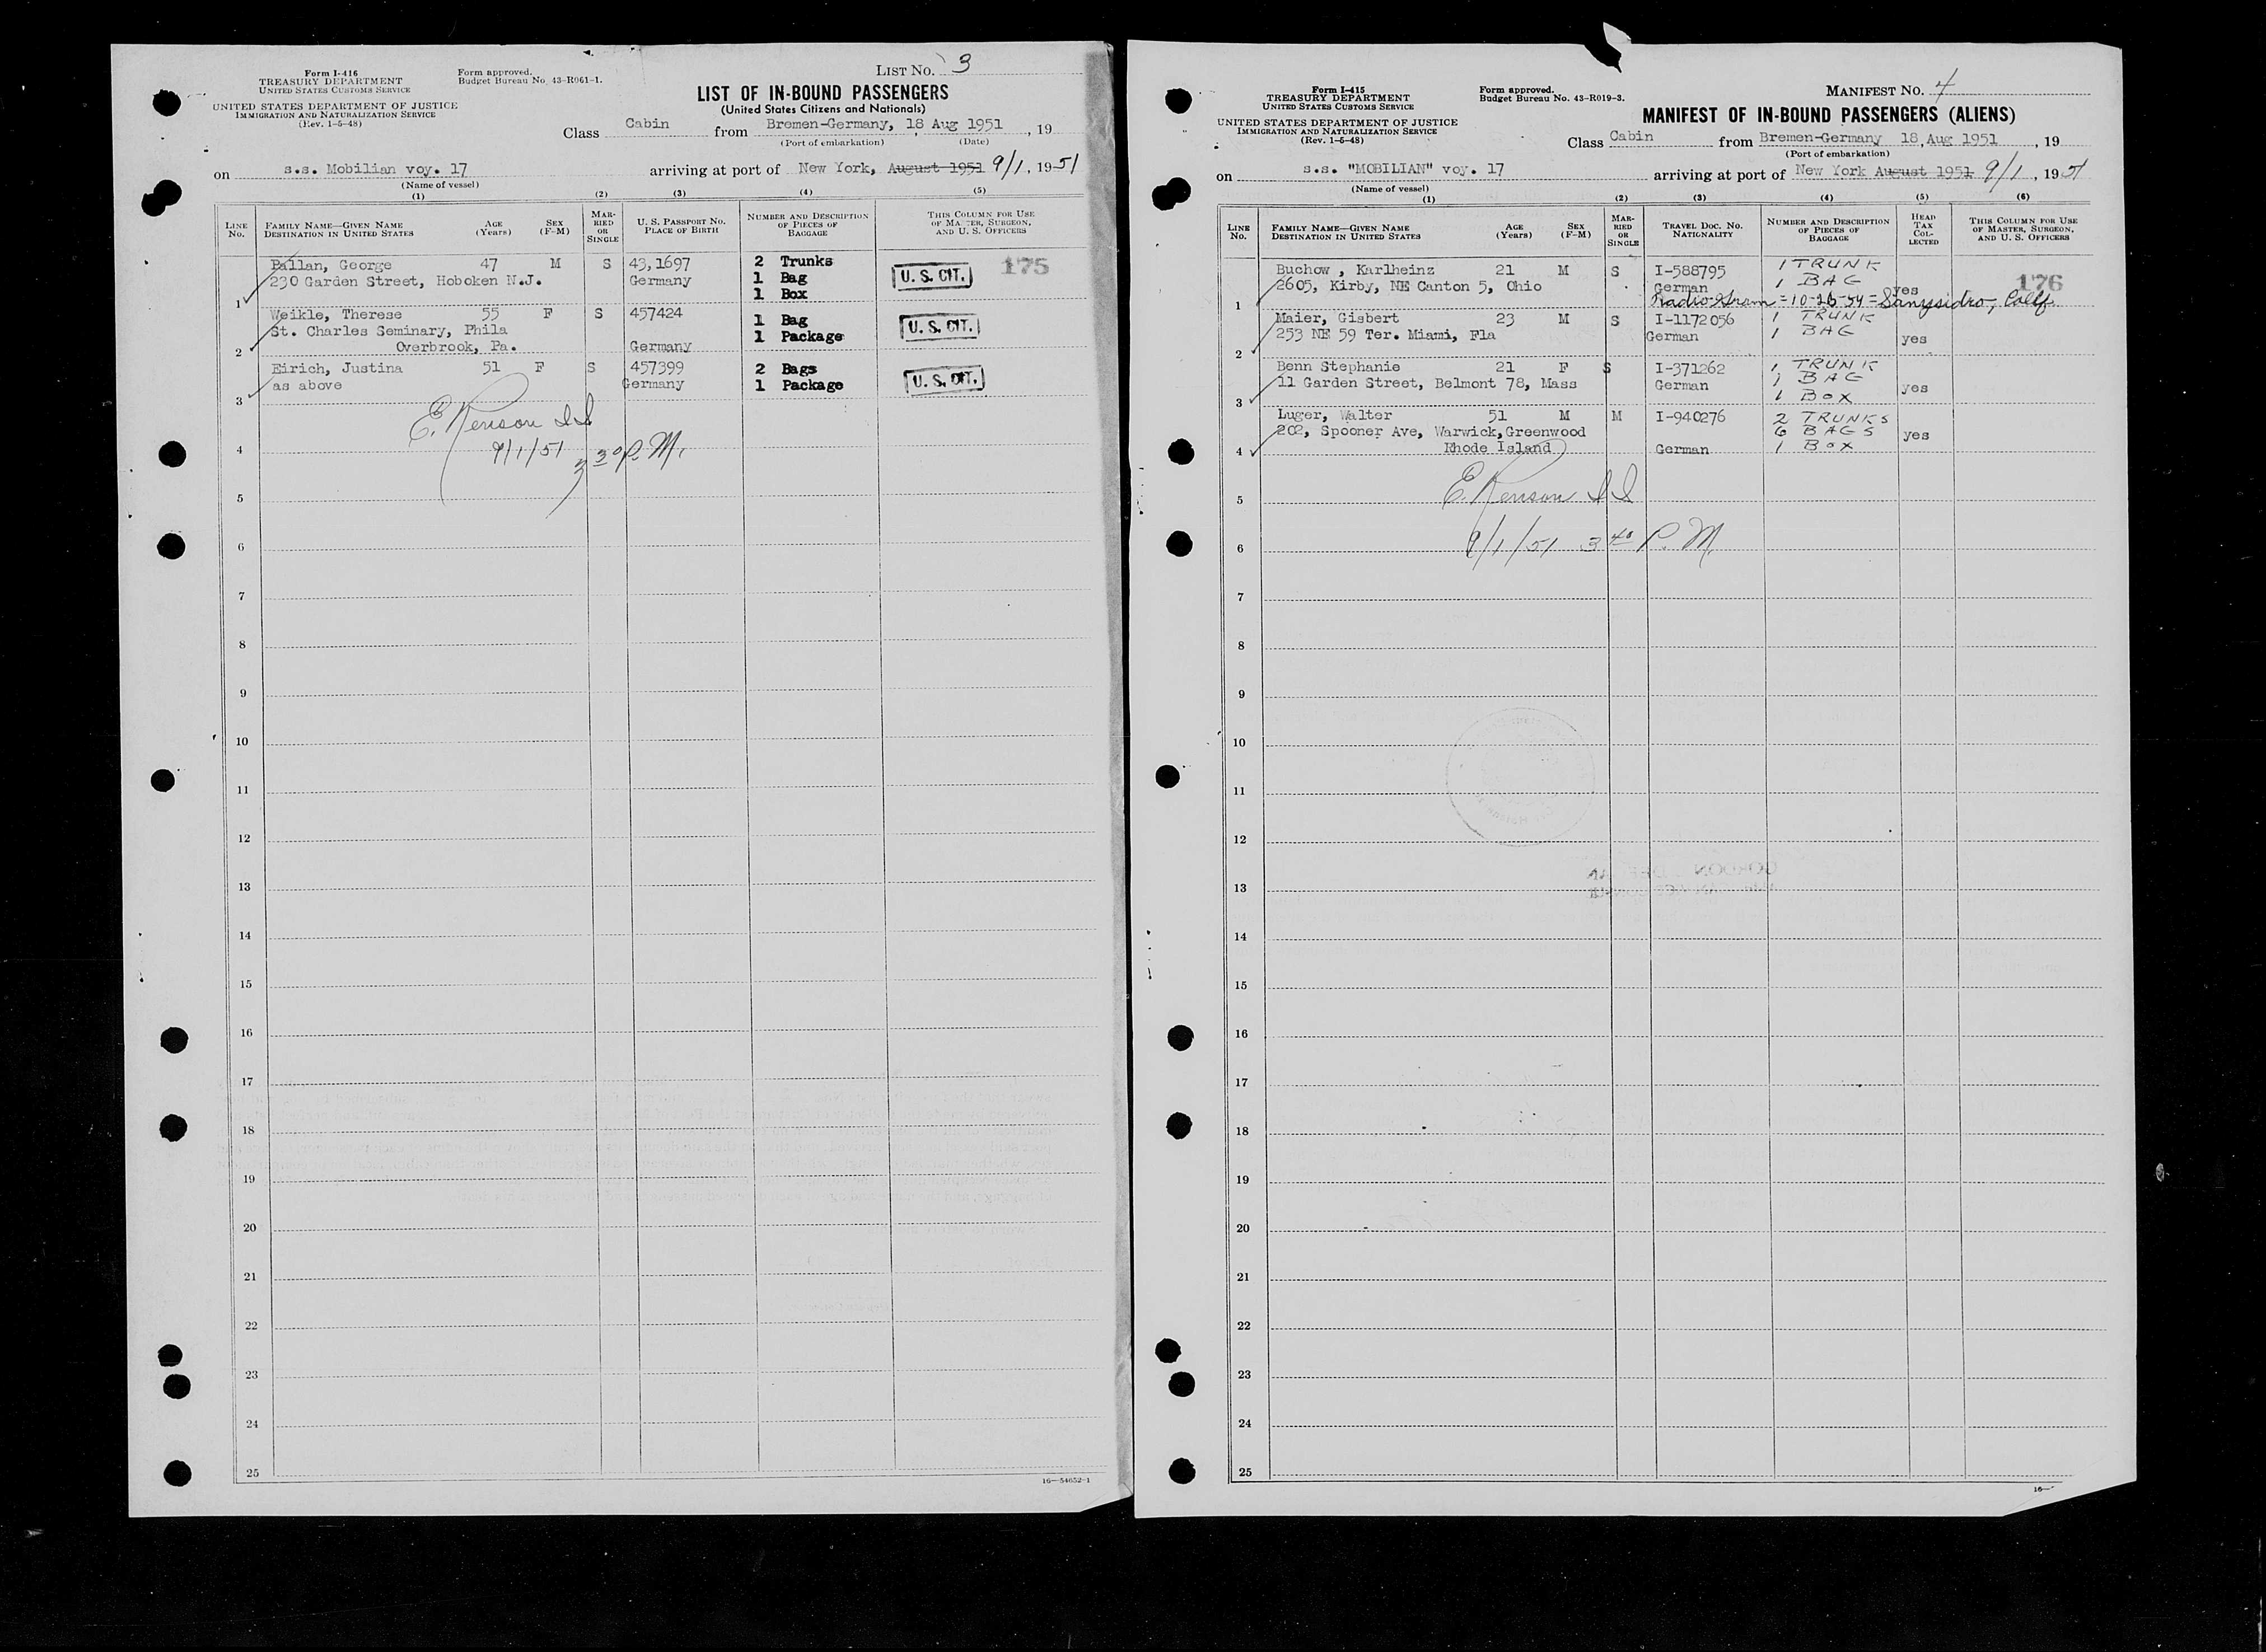 Form I-416
TREASURY DEPARTMENT
UNITED STATES CUSTOMS SERVICE
UNITED STATES DEPARTMENT OF JUSTICE
IMMIGRATION AND NATURALIZATION SERVICE
(Rev. 1-5-48)
Form approved.
Budget Bureau No. 43-R061-1.
LIST NO. 3
LIST OF IN-BOUND PASSENGERS
(United States Citizens and Nationals)
Class Cabin from Bremen-Germany, 18 Aug 1951, 19
(Port of embarkation) (Date)
on s.s. Mobilian voy. 17 arriving at port of New York, August 1951 9/1, 1951
(Name of vessel)
(1) (2) (3) (4) (5)
LINE No. FAMILY NAME—GIVEN NAME DESTINATION IN UNITED STATES AGE (Years) SEX (F-M) MARRIED OR SINGLE U. S. PASSPORT NO. PLACE OF BIRTH NUMBER AND DESCRIPTION OF PIECES OF BAGGAGE THIS COLUMN FOR USE OF MASTER, SURGEON, AND U. S. OFFICERS
Pallan, George 47 M S 43,1697 2 Trunks U. S. CIT. 175
230 Garden Street, Hoboken N.J. Germany 1 Bag
1 1 Box
Weikle, Therese 55 F S 457424 1 Bag U. S. CIT.
St. Charles Seminary, Phila 1 Package
2 Overbrook, Pa. Germany
Eirich, Justina 51 F S 457399 2 Bags U. S. CIT.
as above Germany 1 Package
3
E. Renson
4 9/1/51 3 30 P.M.
5
6
7
8
9
10
11
12
13
14
15
16
17
18
19
20
21
22
23
24
25
16—54652-1
Form I-415
TREASURY DEPARTMENT
UNITED STATES CUSTOMS SERVICE
UNITED STATES DEPARTMENT OF JUSTICE
IMMIGRATION AND NATURALIZATION SERVICE
(Rev. 1-5-48)
Form approved.
Budget Bureau No. 43-R019-3.
MANIFEST NO. 4
MANIFEST OF IN-BOUND PASSENGERS (ALIENS)
Class Cabin from Bremen-Germany 18, Aug 1951, 19
(Port of embarkation)
on s.s. "MOBILIAN" voy. 17 arriving at port of New York August 1951 9/1, 1951
(Name of vessel)
(1) (2) (3) (4) (5) (6)
LINE No. FAMILY NAME—GIVEN NAME DESTINATION IN UNITED STATES AGE (Years) SEX (F-M) MARRIED OR SINGLE TRAVEL DOC. NO. NATIONALITY NUMBER AND DESCRIPTION OF PIECES OF BAGGAGE HEAD TAX COLLECTED THIS COLUMN FOR USE OF MASTER, SURGEON, AND U. S. OFFICERS
Buchow, Karlheinz 21 M S I-588795 1 TRUNK
2605, Kirby, NE Canton 5, Ohio German 1 BAG yes 176
1 Radio-Gram = 10-26-54 = Sanysidro, Calif.
Maier, Gisbert 23 M S I-1172056 1 TRUNK
253 NE 59 Ter. Miami, Fla German 1 BAG yes
2
Benn Stephanie 21 F S I-371262 1 TRUNK
11 Garden Street, Belmont 78, Mass German 1 BAG yes
3 1 BOX
Luger, Walter 51 M M I-940276 2 TRUNKS
202, Spooner Ave, Warwick, Greenwood 6 BAGS yes
4 Rhode Island German 1 BOX
5 E. Renson
6 9/1/51 3 40 P.M.
7
8
9
10
11
12
13
14
15
16
17
18
19
20
21
22
23
24
25
16—